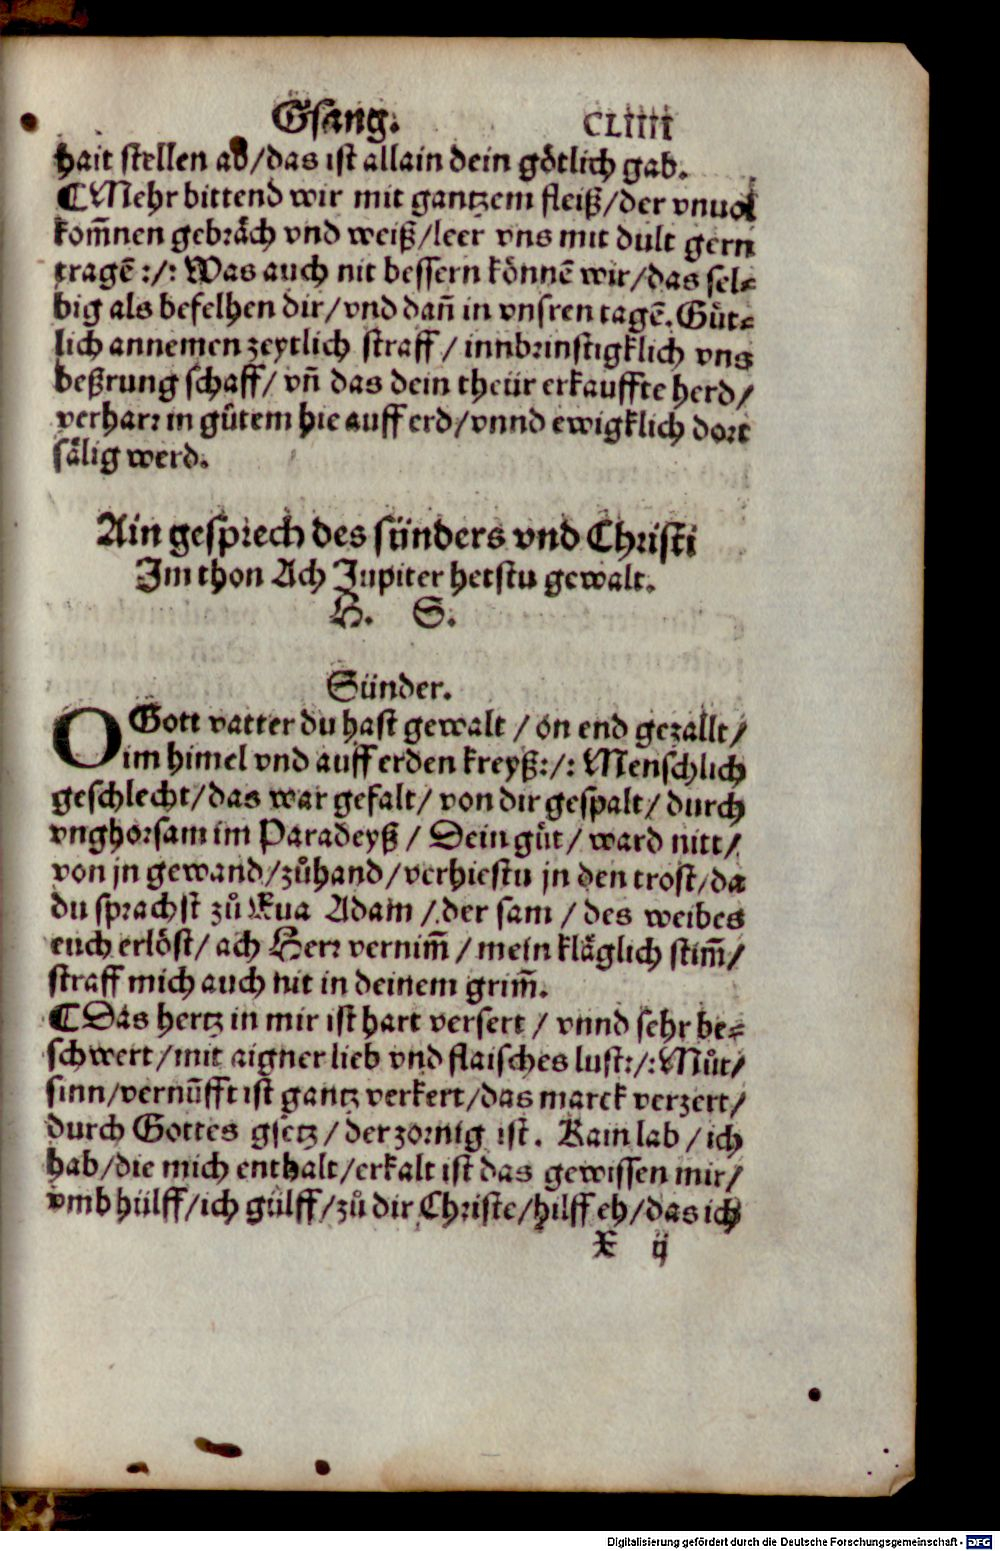 Gsang. CLIIII
hait stellen ab/das ist allain dein götlich gab.
¶Mehr bittend wir mit gantzem fleiß/der vnuol
kom̄nen gebräch vnd weiß/leer vns mit dult gern
tragē :/: Was auch nit bessern könnē wir/das sel⸗
big als befelhen dir/vnd dan̄ in vnsren tagē. Gůt⸗
lich annemen zeytlich straff/ innbrinstigklich vns
beßrung schaff/ vn̄ das dein theür erkauffte herd/
verharr in gůtem hie auff erd/vnnd ewigklich dort
sälig werd.
Ain gesprech des sünders vnd Christi
Im thon Ach Jupiter hetstu gewalt.
H. S.
Sünder.
O Gott vatter du hast gewalt / on end gezallt/
im himel vnd auff erden kreyß:/: Menschlich
geschlecht/das war gefalt/ von dir gespalt/ durch
vnghorsam im Paradeyß / Dein gůt/ ward nitt/
von jn gewand/zůhand/verhiestu jn den trost/da
du sprachst zů Eua Adam /der sam / des weibes
euch erlöst/ ach Herr vernim̄ / mein kläglich stim̄/
straff mich auch nit in deinem grim̄.
¶Das hertz in mir ist hart versert / vnnd sehr be⸗
schwert/mit aigner lieb vnd flaisches lust:/:Můt/
sinn/vernūfft ist gantz verkert/das marck verzert/
durch Gottes gsetz/ der zornig ist. Kain lab/ ich
hab/die mich enthalt/erkalt ist das gewissen mir/
vmb hülff/ich gülff/zů dir Christe/hilff eh/das ich
X ij
Digitalisierung gefördert durch die Deutsche Forschungsgemeinschaft - DFG